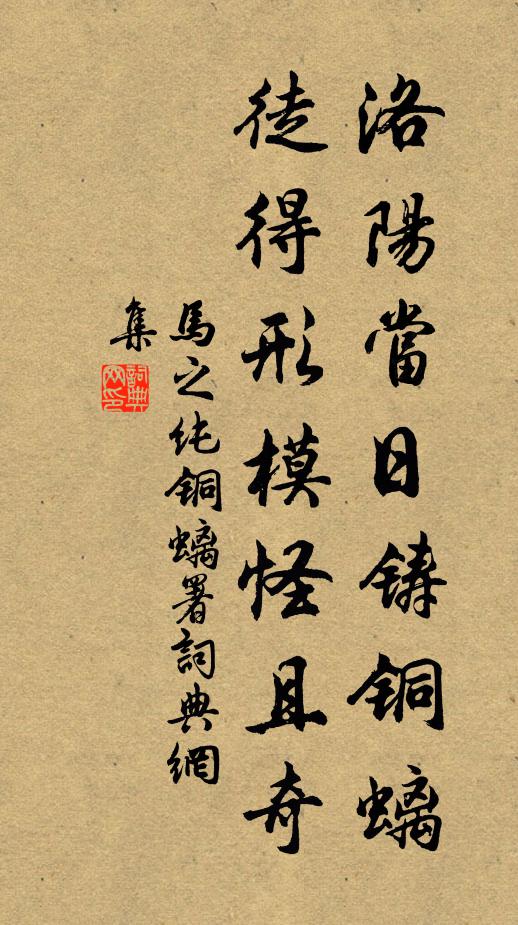 洛陽當日鑄銅螭
徒得形模怪且奇
馬之純銅螭署詞典網
集
詞典
网印